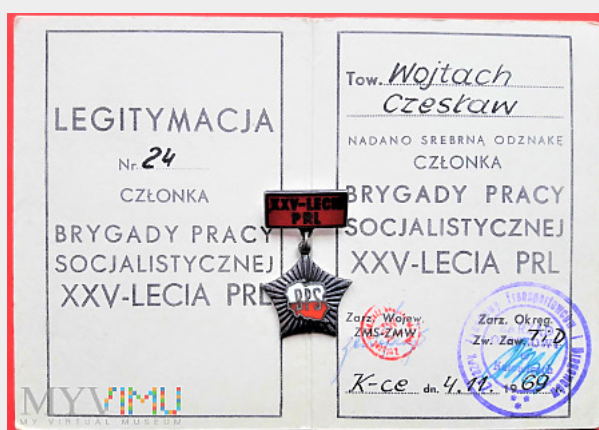 LEGITYMACJA
Nr. 24
CZŁONKA
BRYGADY PRACY
SOCJALISTYCZNEJ
XXV-LECIA PRL
XXV-LECIA
PRL
BPS
Tow. Wojtach
Czesław
NADANO SREBRNĄ ODZNAKĘ
CZŁONKA
BRYGADY PRACY
SOCJALISTYCZNEJ
XXV-LECIA PRL
Zarz. Wojew.
ZMS-ZMW
Zarz. Okręg.
Zw. Zaw. TiD
K-ce dn. 4.11. 1969
MYVIMU
MY VIRTUAL MUSEUM